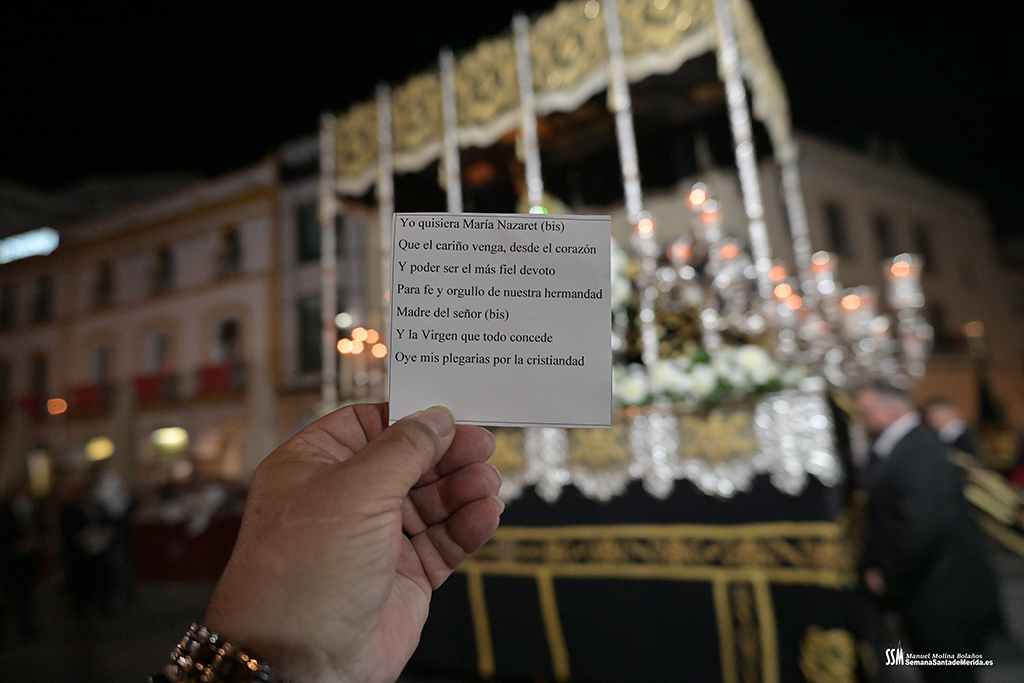 Yo quisiera María Nazaret (bis)
Que el cariño venga, desde el corazón
Y poder ser el más fiel devoto
Para fe y orgullo de nuestra hermandad
Madre del señor (bis)
Y la Virgen que todo concede
Oye mis plegarias por la cristiandad
SSM Manuel Molina Bolaños
SemanaSantadeMerida.es